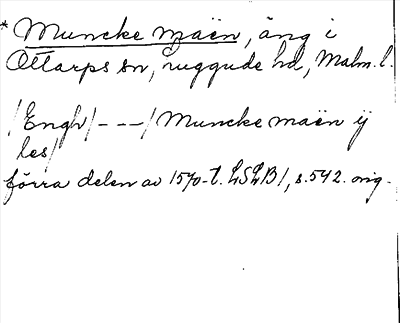 * Muncke maën, äng i
Ottarps sn, ruggude hd, Malm. l.
/Engh/ - - - / Muncke maën ij
les/
förra delen av 1570-t. LSLB1, s. 542. orig.